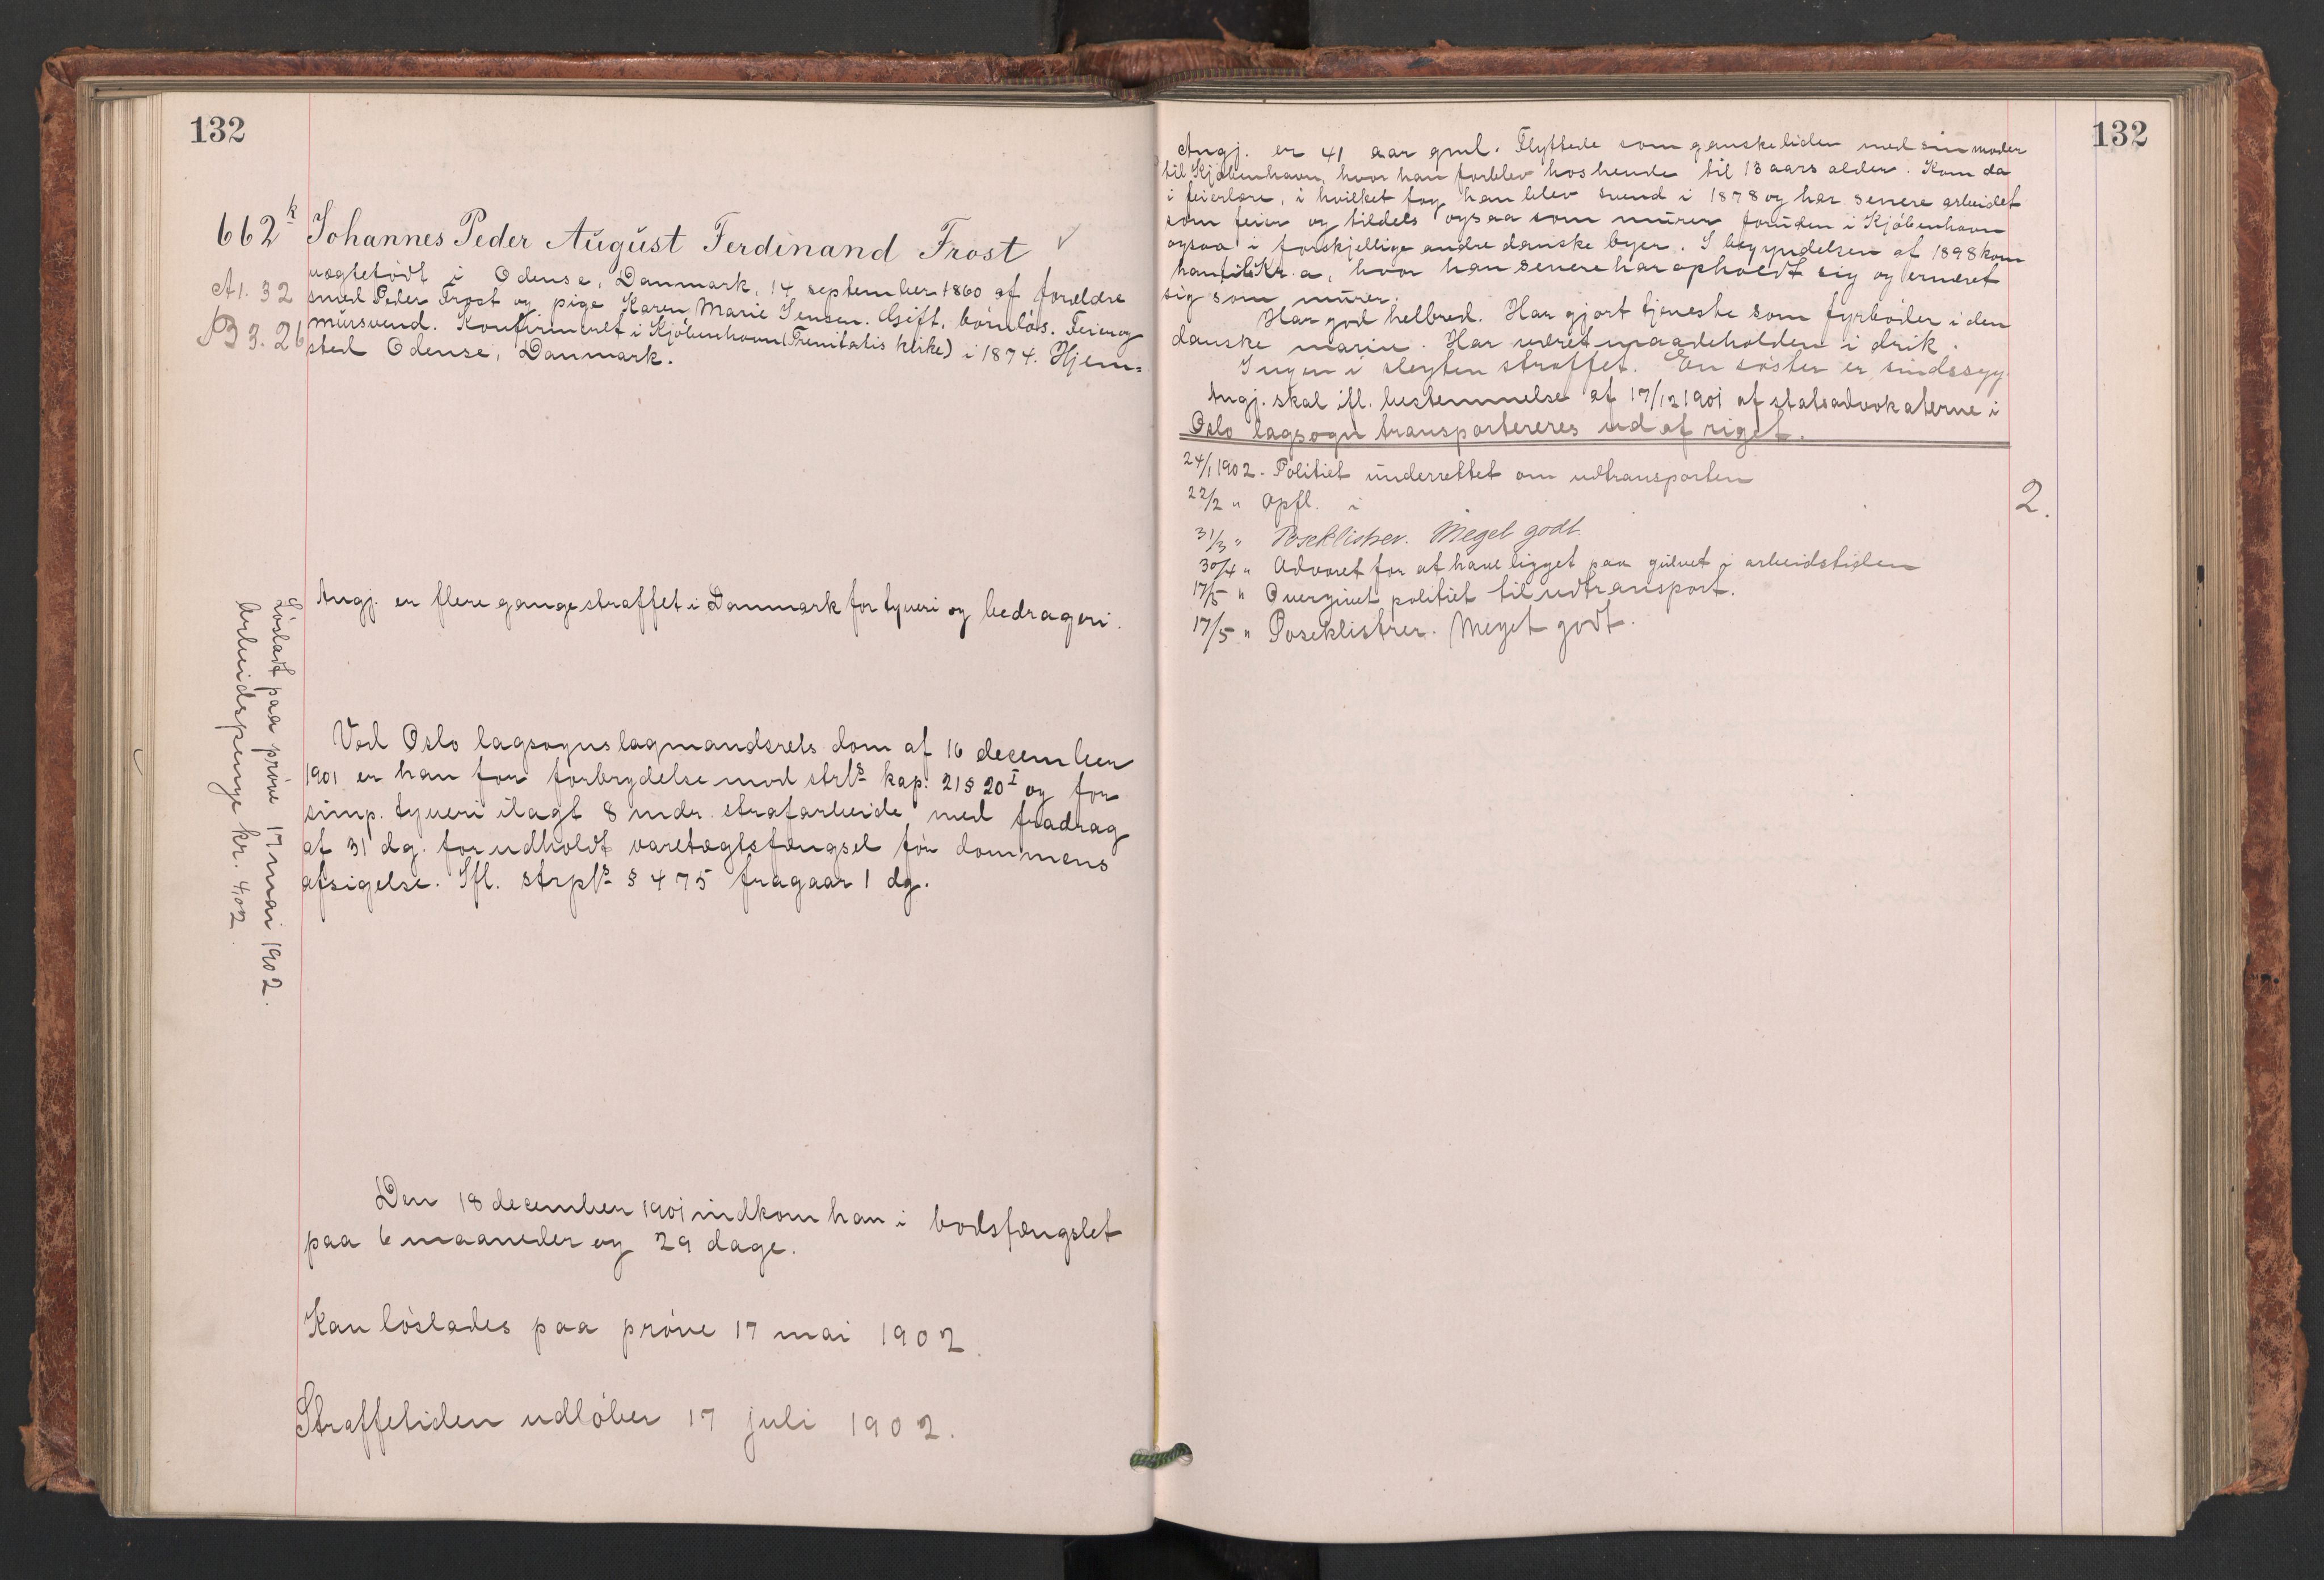 132
662 k Johannes Peder August Ferdinand Frost
ægtefödt i Odense, Danmark, 14 september 1860 af forældre
A1. 32 smed Peder Frost og pige Karen Marie Jensen. Gift, børnløs. Feier og
B 3. 26 mursvend. Konfirmeret i Kjöbenhavn (Trenitatis kirke) i 1874. Hjem=
sted Odense, Danmark.
Angj. er flere gange straffet i Danmark for tyveri og bedrageri.
Løsladt paa prøve 17 mai 1902.
Arbeidspenge kr. 4,02.
Ved Oslo lagsogns lagmandsrets dom af 16 december
1901 er han for forbrydelse mod strls kap. 21 § 20 I og for
simp. tyveri ilagt 8 mdr. strafarbeide med fradrag
af 31 dg. for udholdt varetægtsfængsel før dommens
afsigelse. Ifl. strpls § 475 fragaar 1 dg.
Den 18 december 1901 indkom han i bodsfængslet
paa 6 maaneder og 29 dage.
Kan løslades paa prøve 17 mai 1902.
Straffetiden udløber 17 juli 1902.
132
Angj. er 41 aar gml. Flyttede som ganske liden med sin moder
til Kjøbenhavn, hvor han forblev hos hende til 13 aars alder. Kom da
i feierlære, i hvilket fag han blev svend i 1878 og har senere arbeidet
som feier og tildels ogsaa som murer foruden i Kjøbenhavn
ogsaa i forskjellige andre danske byer. I begyndelsen af 1898 kom
han til Kr.a, hvor han senere har opholdt sig og ernæret
sig som murer.
Har god helbred. Har gjort tjeneste som fyrbøder i den
danske marine. Har været maadeholden i drik.
Ingen i slegten straffet. En søster er sindssyg
Angj. skal ifl. bestemmelse af 17/12 1901 af statsadvokaterne i
Oslo lagsogn transportereres ud af riget.
24/1 1902. Politiet underrettet om udtransporten
22/2 " Opfl. i 2.
31/3 " Poseklistrer. Meget godt.
30/4 " Advaret for at have ligget paa gulvet i arbeidstiden
17/5 " Overgivet politiet til udtransport.
17/5 " Poseklistrer. Meget godt.